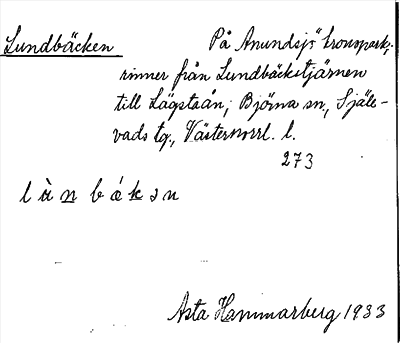 Lundbäcken
På Anundsjö kronopark;
rinner från Lundbäckstjärnen
till Lägstaån; Björna sn., Själe-
vads tg., Västernorrl. l.
273
lùnbákən
Asta Hammarberg 1933